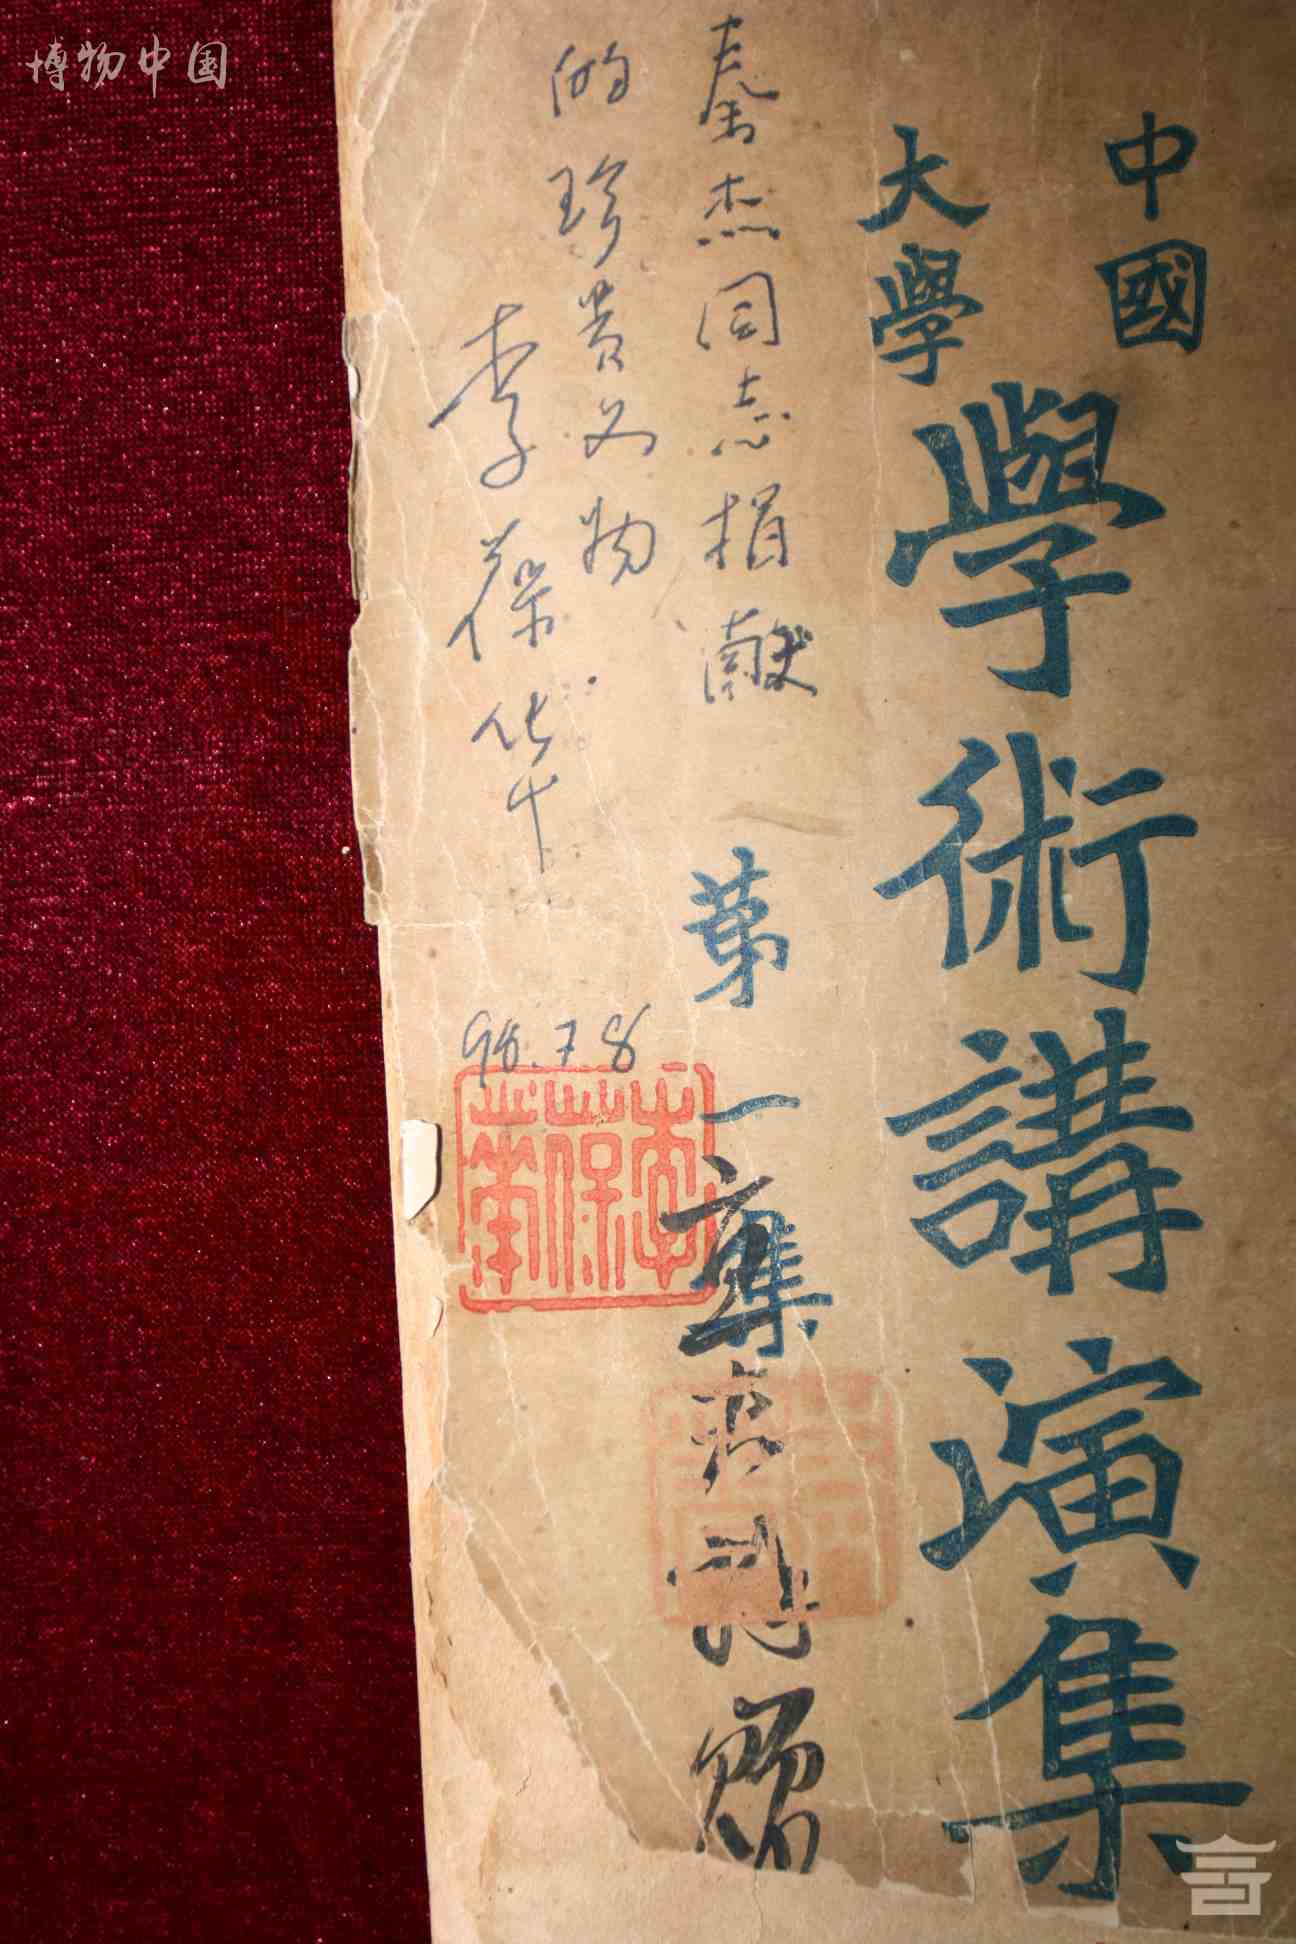 博物中国
中國
大學
學術講演集
第一集
秦杰同志捐献
的珍贵文物
李葆华
李葆華